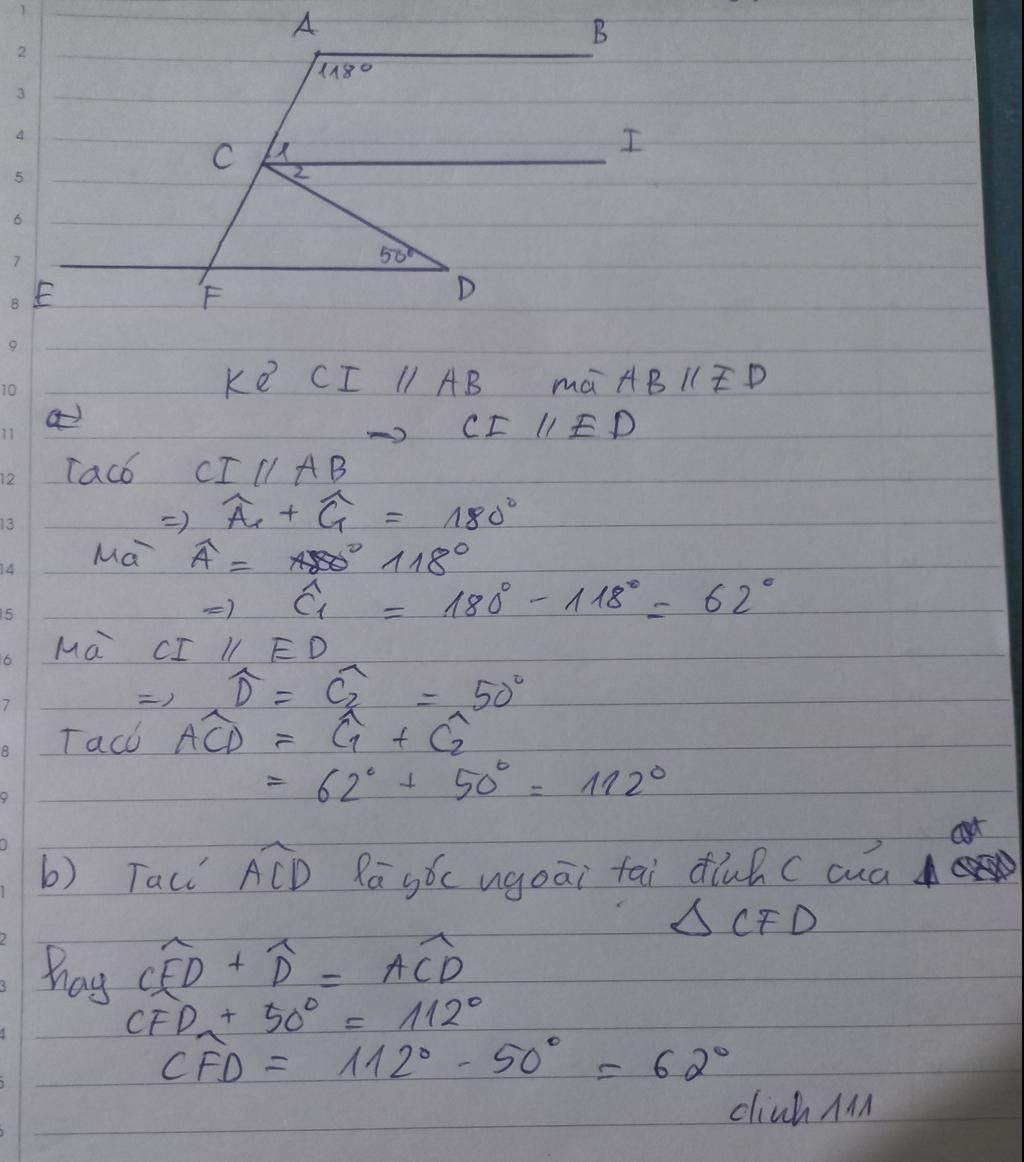 A B
118°
C 1 I
2
50°
E F D
Kẻ CI // AB mà AB // ED
=> CI // ED
Ta có CI // AB
=> Â₁ + Ĉ₁ = 180°
Mà Â = 118°
=> Ĉ₁ = 180° - 118° = 62°
Mà CI // ED
=> D̂ = Ĉ₂ = 50°
Ta có AĈD = Ĉ₁ + Ĉ₂
= 62° + 50° = 112°
b) Ta cí AĈD là góc ngoài tại đỉnh C của Δ
Δ CFD
hay CF̂D + D̂ = AĈD
CF̂D + 50° = 112°
CF̂D = 112° - 50° = 62°
dinh111